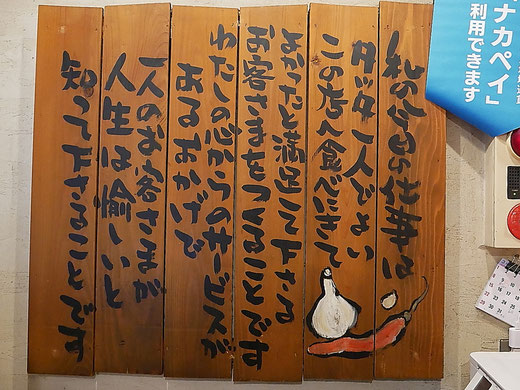 私の今日の仕事は
タッタ一人でよい
この店へ食べにきて
よかったと満足して下さる
お客さまをつくることです
わたしの心からのサービスが
あるおかげで
一人のお客さまが
人生は愉しいと
知って下さることです
ナカペイ」
利用できます